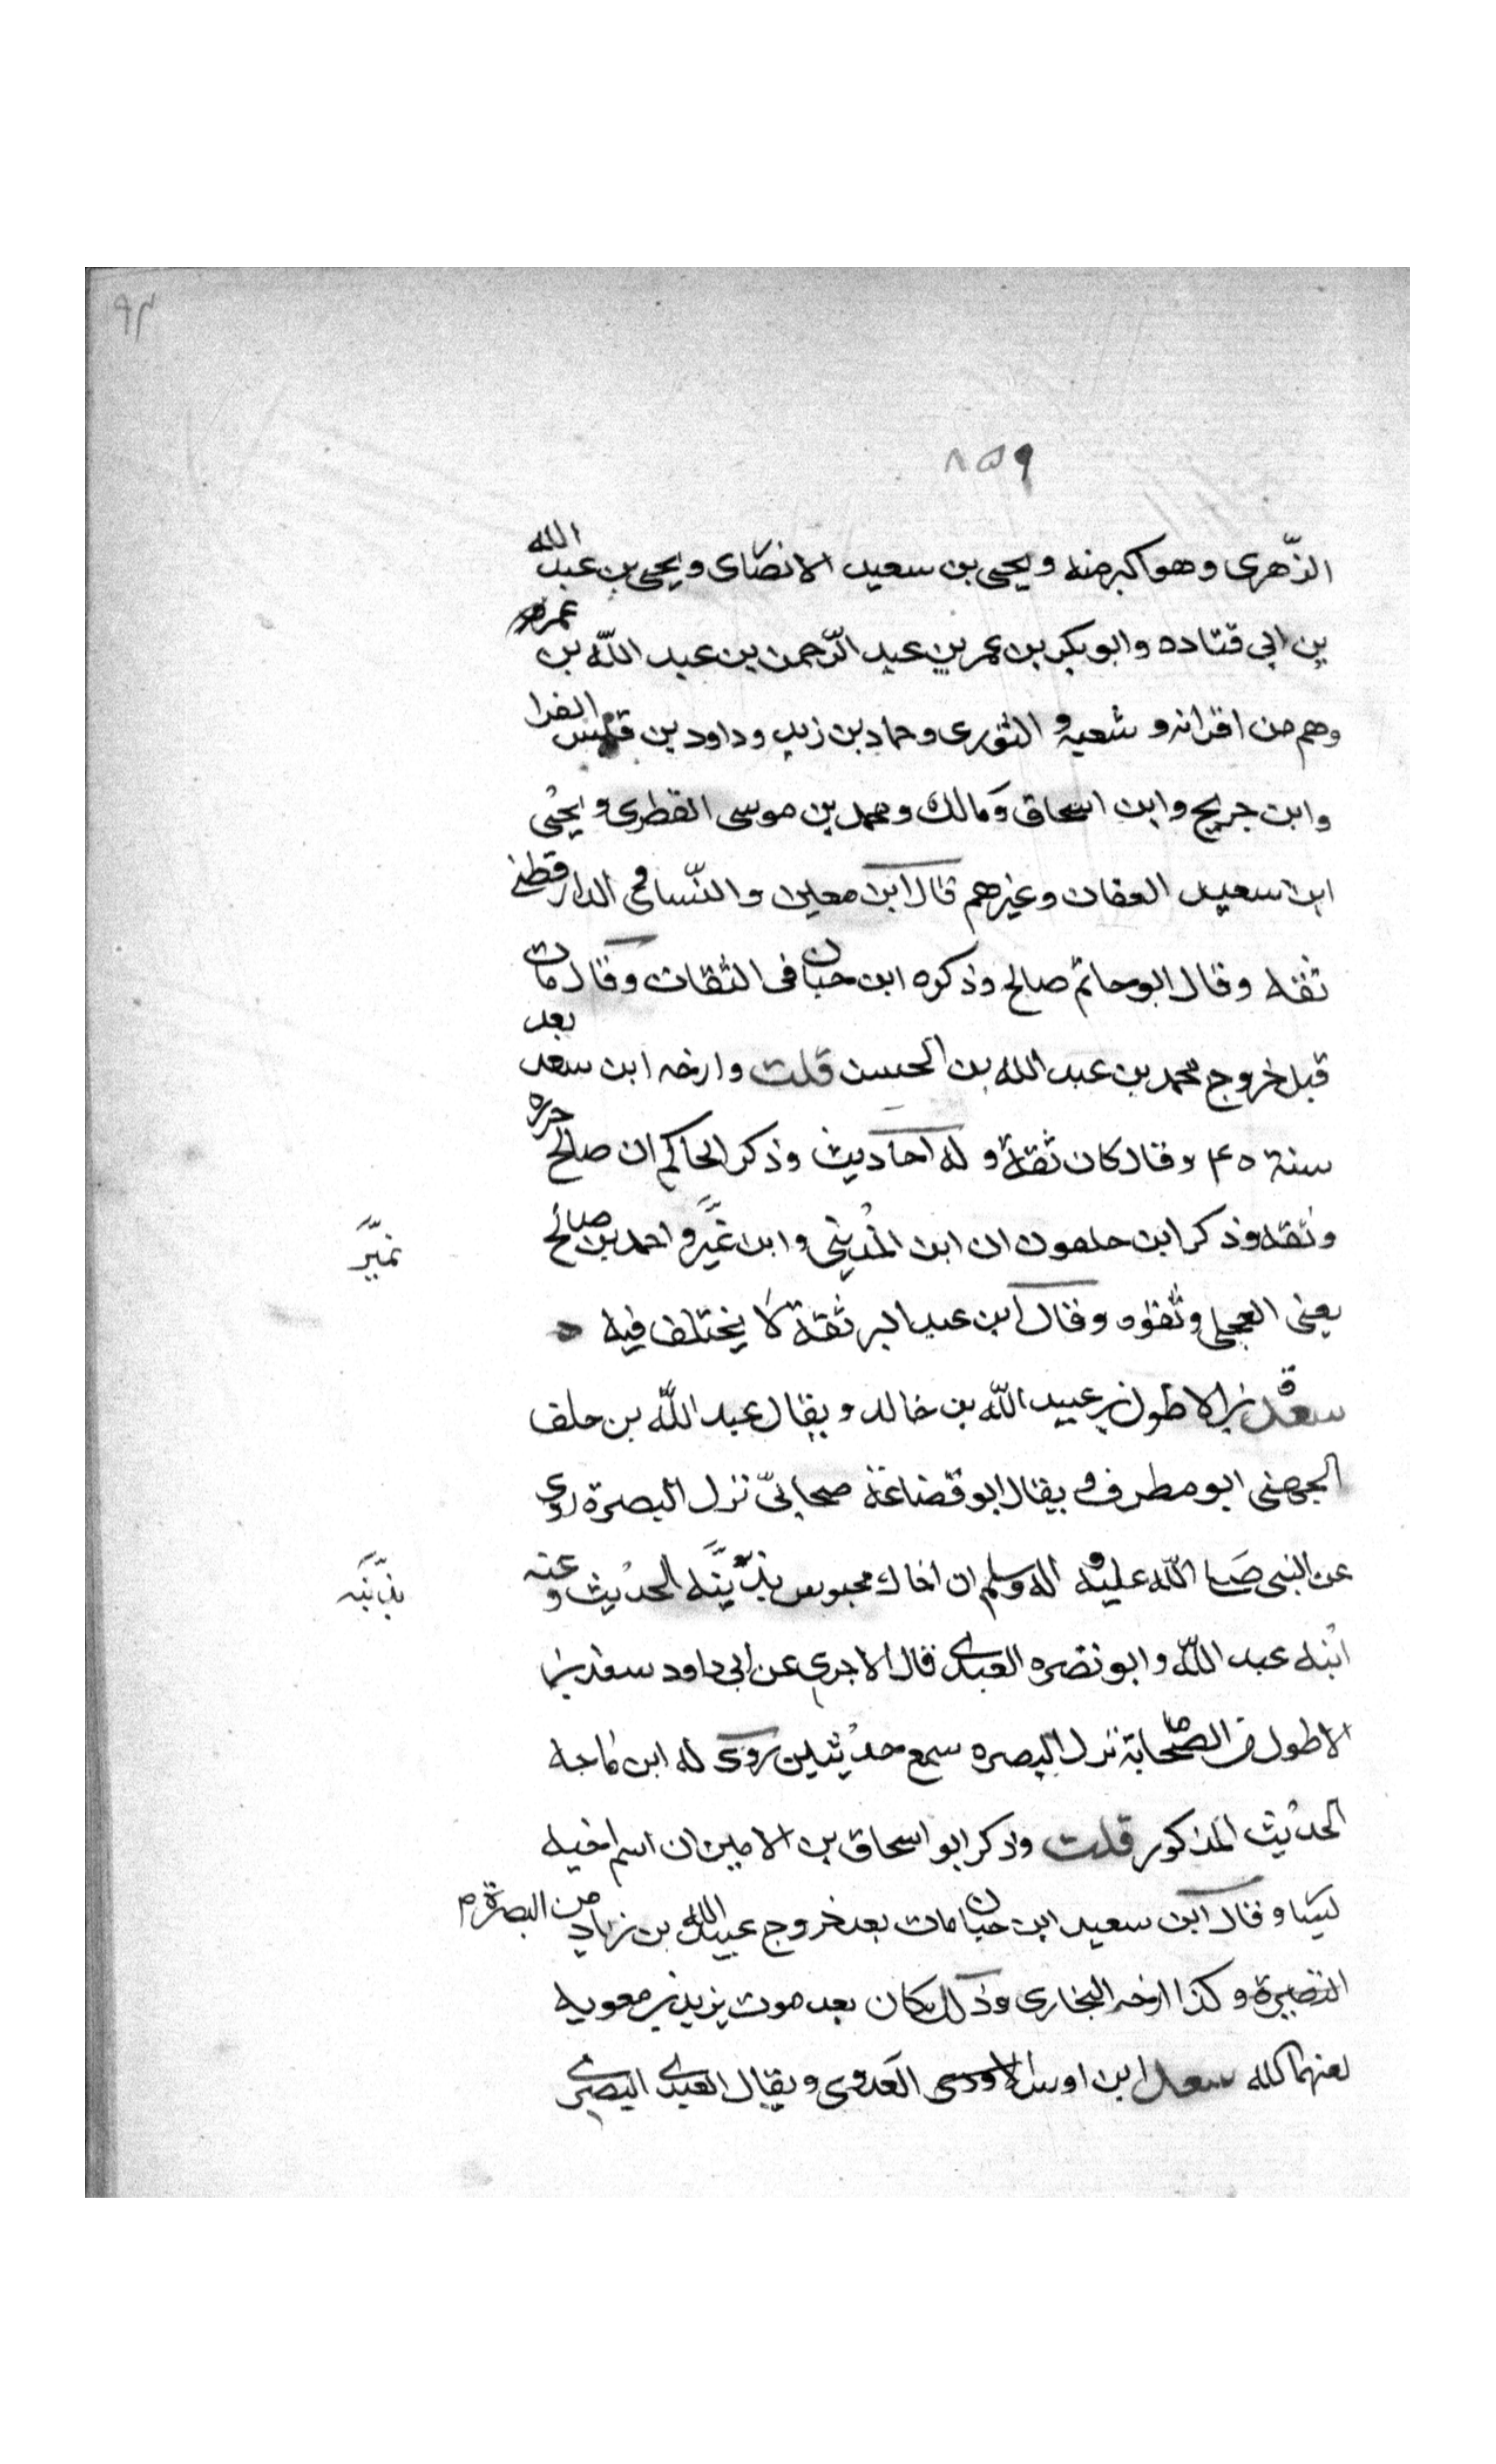 ٩٣
٨٥٩
الزّهرى وهو اكبر منه ويحيى بن سعيد الانصاى ويحيى بن عبد الله
بن ابى قتاده وابو بكر بن عمر بن عبد الرّحمن بن عبد اللّه بن عمر
وهم من اقرانه وشعبة و الثورى وحماد بن زيد وداود بن قيس الفرا
وابن جريج وابن اسحاق ومالك ومحمد بن موسى الفطرى ويحيى
ابن سعيد العفان وغيرهم قال ابن معين والنّساى الدار قطنى
ثقه وقال ابو حاتم صالح وذكره ابن حبان فى الثقات وقال مات
قبل خروج محمد بن عبد الله بن الحسن قلت وارخه ابن سعد بعد
سنة ٤٥ وقال كان ثقة وله احاديث وذكر الحاكم ان صالح جزره
وثقه وذكر ابن حلفون ان ابن المدينى وابن نميّر و احمد بن صالح
نميّر
يعنى العجلى وثقوه وقال ابن عبد البر ثقة لا يختلف فيه ه
سعد بن الاطول بن عبيد اللّه بن خالد ويقال عبد اللّه بن خلف
الجهنى ابو مطرف و يقال ابو قضاعة صحابىّ نزل البصرة روى
عن النبى صلى اللّه عليه و اله وسلم ان اخاك محبوس بديّنه الحديث وعنه
بديّنه
ابنه عبد اللّه وابو نضره العبدى قال الاجرى عن ابى داود سعد بن
الاطول من الصحابة نزل البصره سمع حديثين روى له ابن ماجه
الحديث المذكور قلت وذكر ابو اسحاق بن الامين ان اسم اخيه
يسا وقال ابن سعيد ابن حبان مات بعد خروج عبيد الله بن زياد من البصرة م
البصرة وكذا ارخه البخارى وذلك كان بعد موت يزيد بن معويه
لعنهما لله سعد ابن اوس الاودى العدوى ويقال العبدى البصرى